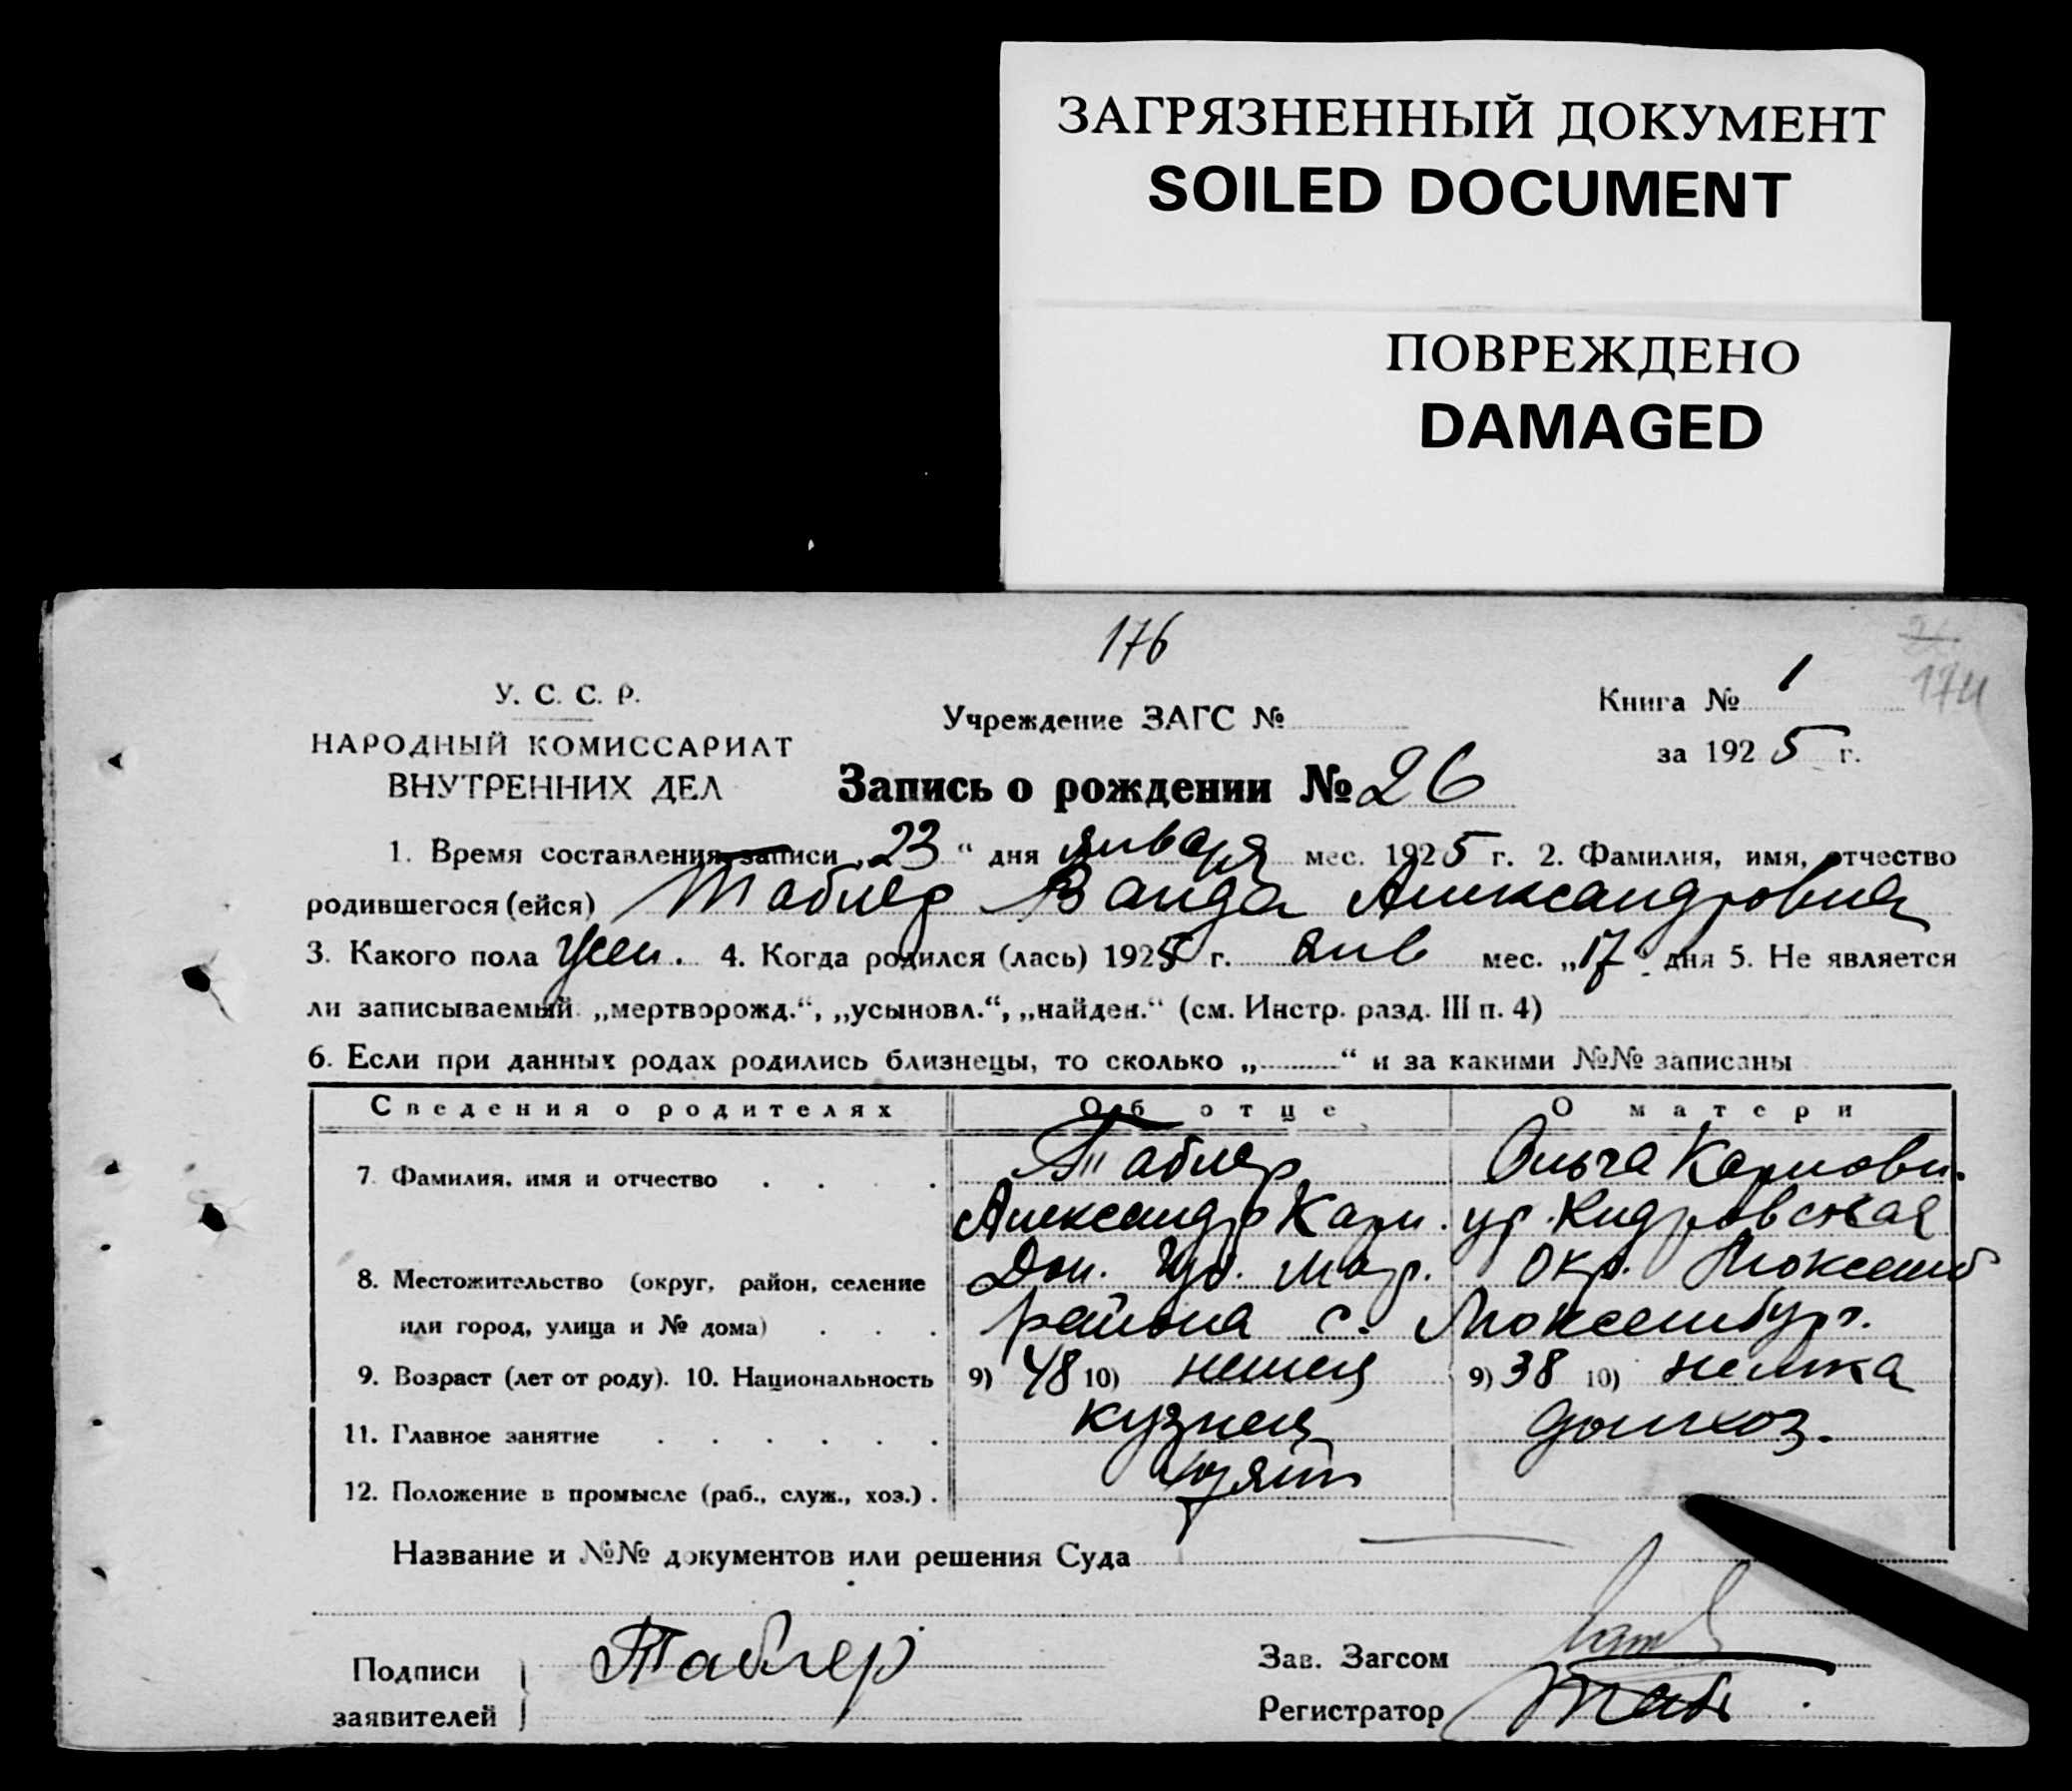 ЗАГРЯЗНЕННЫЙ ДОКУМЕНТ
SOILED DOCUMENT
ПОВРЕЖДЕНО
DAMAGED
176
174
У. С. С. Р.
НАРОДНЫЙ КОМИССАРИАТ
ВНУТРЕННИХ ДЕЛ
Учреждение ЗАГС №
Книга № 1
за 1925 г.
Запись о рождении № 26
1. Время составления записи „23“ дня января мес. 1925 г. 2. Фамилия, имя, отчество
родившегося (ейся) Таблер Ванда Александровна
3. Какого пола жен. 4. Когда родился (лась) 1925 г. янв мес. „17“ дня 5. Не является
ли записываемый „мертворожд.“, „усыновл.“, „найден.“ (см. Инстр. разд. III п. 4)
6. Если при данных родах родились близнецы, то сколько „ “ и за какими №№ записаны
Сведения о родителях Об отце О матери
7. Фамилия, имя и отчество Таблер Ольга Карловн.
Александр Карл. ур.
8. Местожительство (округ, район, селение Дон. Губ. Мар. Окр. Люксемб
или город, улица и № дома) района с. Люксембург.
9. Возраст (лет от роду). 10. Национальность 9) 48 10) немец 9) 38 10) немка
11. Главное занятие кузнец домхоз.
12. Положение в промысле (раб., служ., хоз.) хозяин
Название и №№ документов или решения Суда
Подписи
заявителей
Таблер
Зав. Загсом
Регистратор